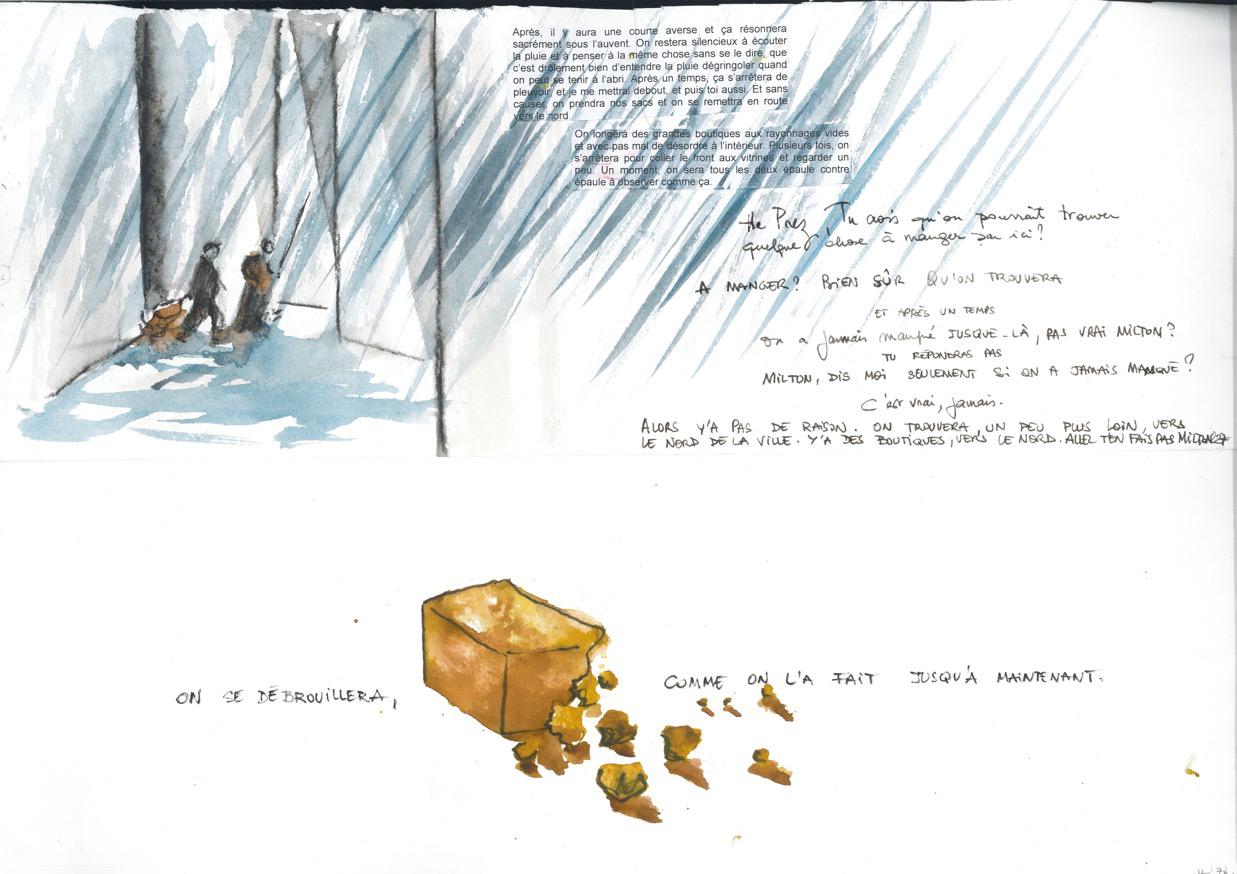 Après, il y aura une courte averse et ça résonnera
sacrément sous l'auvent. On restera silencieux à écouter
la pluie et à penser à la même chose sans se le dire, que
c'est drôlement bien d'entendre la pluie dégringoler quand
on peut se tenir à l'abri. Après un temps, ça s'arrêtera de
pleuvoir, et je me mettrai debout, et puis toi aussi. Et sans
causer, on prendra nos sacs et on se remettra en route
vers le nord.
On longera des grandes boutiques aux rayonnages vides
et avec pas mal de désordre à l'intérieur. Plusieurs fois, on
s'arrêtera pour coller le front aux vitrines et regarder un
peu. Un moment, on sera tous les deux épaule contre
épaule à observer comme ça.
He Prez, Tu crois qu'on pourrait trouver
quelque chose à manger par ici?
A MANGER? BIEN SÛR QU'ON TROUVERA
ET APRÈS UN TEMPS
on a jamais manqué JUSQUE-LÀ, PAS VRAI MILTON?
TU RÉPONDRAS PAS
MILTON, DIS MOI SEULEMENT SI ON A JAMAIS MANQUÉ?
C'est vrai, jamais.
ALORS Y'A PAS DE RAISON. ON TROUVERA, UN PEU PLUS LOIN, VERS
LE NORD DE LA VILLE. Y'A DES BOUTIQUES, VERS LE NORD. ALLEZ T'EN FAIS PAS MILTON
ON SE DÉBROUILLERA,
COMME ON L'A FAIT JUSQU'À MAINTENANT.